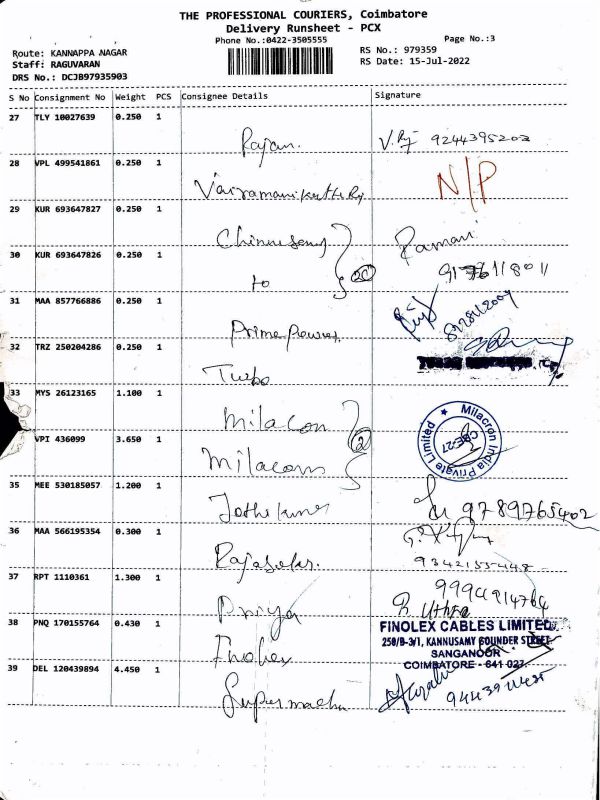 THE PROFESSIONAL COURIERS, Coimbatore
Delivery Runsheet - PCX
Phone No.:0422-3505555
Page No.:3
Route: KANNAPPA NAGAR
Staff: RAGUVARAN
DRS No.: DCJB97935903
RS No.: 979359
RS Date: 15-Jul-2022
S No Consignment No Weight PCS Consignee Details Signature
27 TLY 10027639 0.250 1
Rajan. 9244395203
28 VPL 499541861 0.250 1
N/P
29 KUR 693647827 0.250 1
Chinnusamy Ramani
30 KUR 693647826 0.250 1
to
31 MAA 857766886 0.250 1
Prime Power
32 TRZ 250204286 0.250 1
Turbo
33 MYS 26123165 1.100 1
Milacon 2
VPI 436099 3.650 1
Milacron
Milacron India Private Limited
CBE-27
35 MEE 530185057 1.200 1
9789765402
36 MAA 566195354 0.300 1
37 RPT 1110361 1.300 1
Priya
38 PNQ 170155764 0.430 1
Finolex
FINOLEX CABLES LIMITED
258/B-3/1, KANNUSAMY GOUNDER STREET
SANGANOOR
COIMBATORE - 641 027
39 DEL 120439894 4.450 1